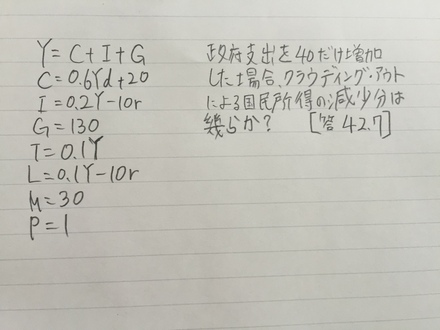 Y=C+I+G
C=0.6Yd+20
I=0.2Y-10r
G=130
T=0.1Y
L=0.1Y-10r
M=30
P=1
政府支出を40だけ増加
した場合、クラウディング・アウト
による国民所得の減少分は
幾らか? [答42.7]